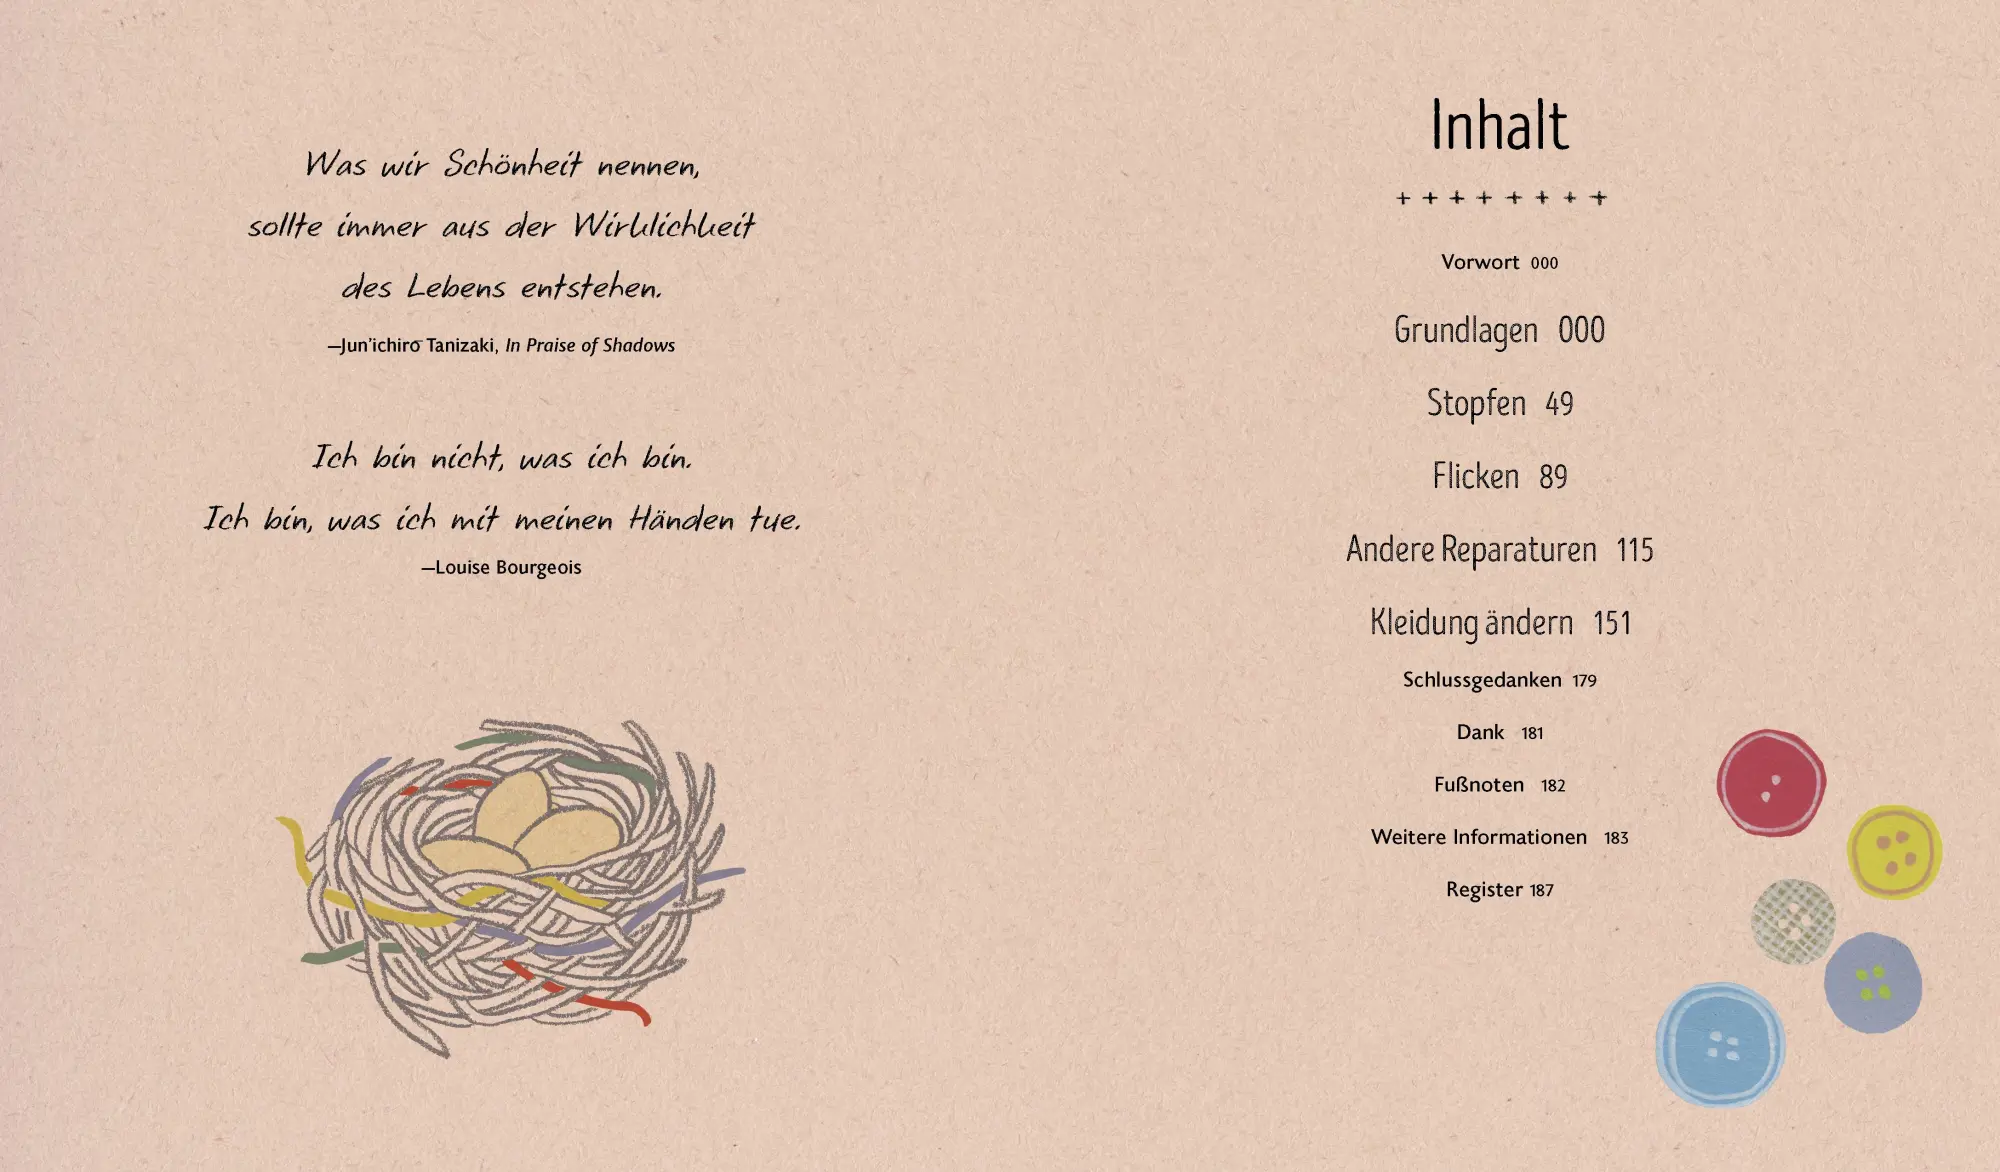 Was wir Schönheit nennen,
sollte immer aus der Wirklichkeit
des Lebens entstehen.
—Jun’ichirō Tanizaki, In Praise of Shadows
Ich bin nicht, was ich bin.
Ich bin, was ich mit meinen Händen tue.
—Louise Bourgeois
Inhalt
Vorwort 000
Grundlagen 000
Stopfen 49
Flicken 89
Andere Reparaturen 115
Kleidung ändern 151
Schlussgedanken 179
Dank 181
Fußnoten 182
Weitere Informationen 183
Register 187